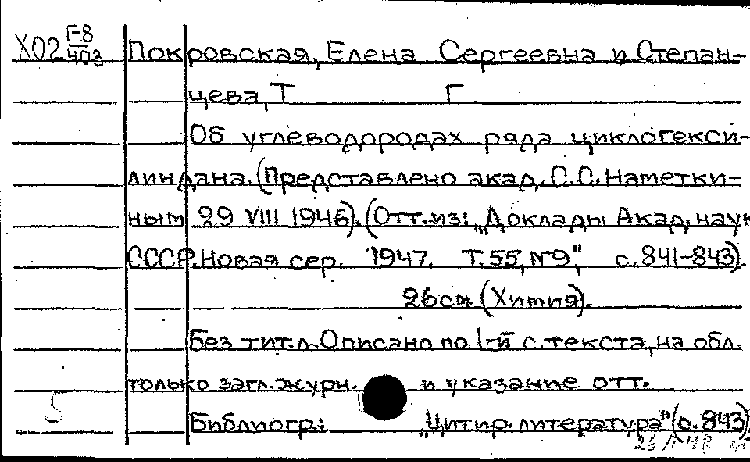 Х02 Г-8/403 Покровская, Елена Сергеевна и Степан-
цева, Т Г
Об углеводородах ряда циклогекси-
линдана. (Представлено акад. С.С. Наметки-
ным 29 VIII 1946). (Отт. из: „Доклады Акад. наук
СССР. Новая сер. 1947. Т. 55, №9", с. 841-843).
26 см (Химия).
Без тит. л. Описано по 1-й с. текста, на обл.
только загл. журн. и указание отт.
5
Библиогр.: „Цитир. литература" (с. 843)